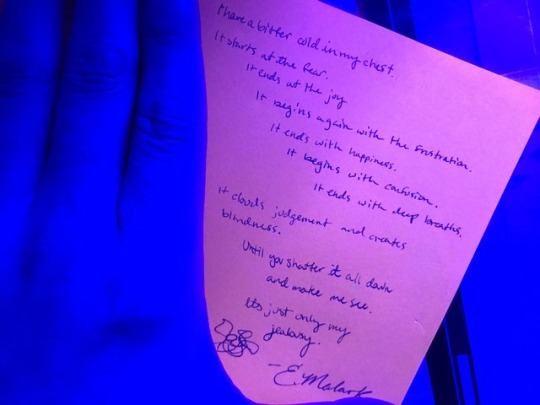 I have a bitter cold in my chest.
It starts at the fear.
It ends at the joy
It begins again with the frustration.
It ends with happiness.
It begins with confusion.
It ends with deep breaths.
It clouds judgement and creates
blindness.
Until you shatter it all down
and make me see.
Its just only my
jealousy.
- E. Malark